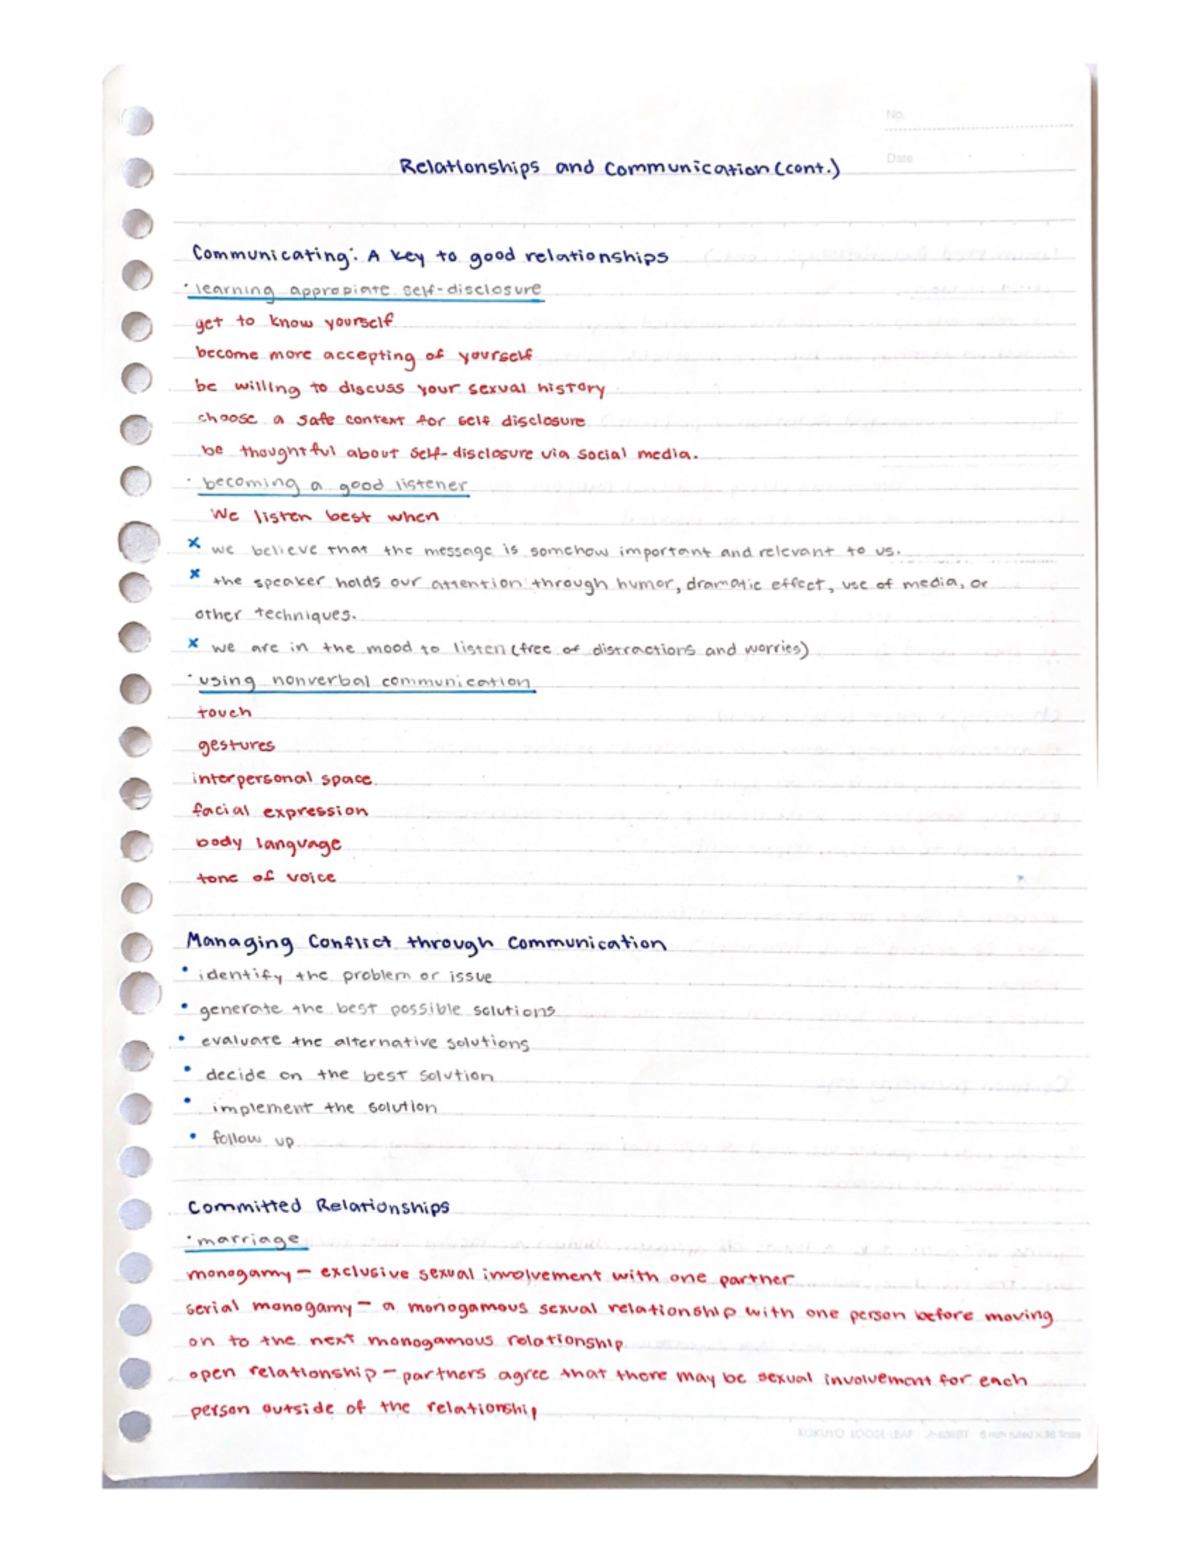 No.
Date
Relationships and Communication (cont.)
Communicating: A key to good relationships
· learning appropiate self-disclosure
get to know yourself
become more accepting of yourself
be willing to discuss your sexual history
choose a safe context for self disclosure
be thoughtful about self-disclosure via social media.
· becoming a good listener
We listen best when
x we believe that the message is somehow important and relevant to us.
x the speaker holds our attention through humor, dramatic effect, use of media, or
other techniques.
x we are in the mood to listen (free of distractions and worries)
· using nonverbal communication
touch
gestures
interpersonal space
facial expression
body language
tone of voice
Managing Conflict through Communication
• identify the problem or issue
• generate the best possible solutions
• evaluate the alternative solutions
• decide on the best solution
• implement the solution
• follow up
Committed Relationships
· marriage
monogamy – exclusive sexual involvement with one partner
serial monogamy – a monogamous sexual relationship with one person before moving
on to the next monogamous relationship
open relationship – partners agree that there may be sexual involvement for each
person outside of the relationship
KOKUYO LOOSE-LEAF 6 mm ruled × 36 lines